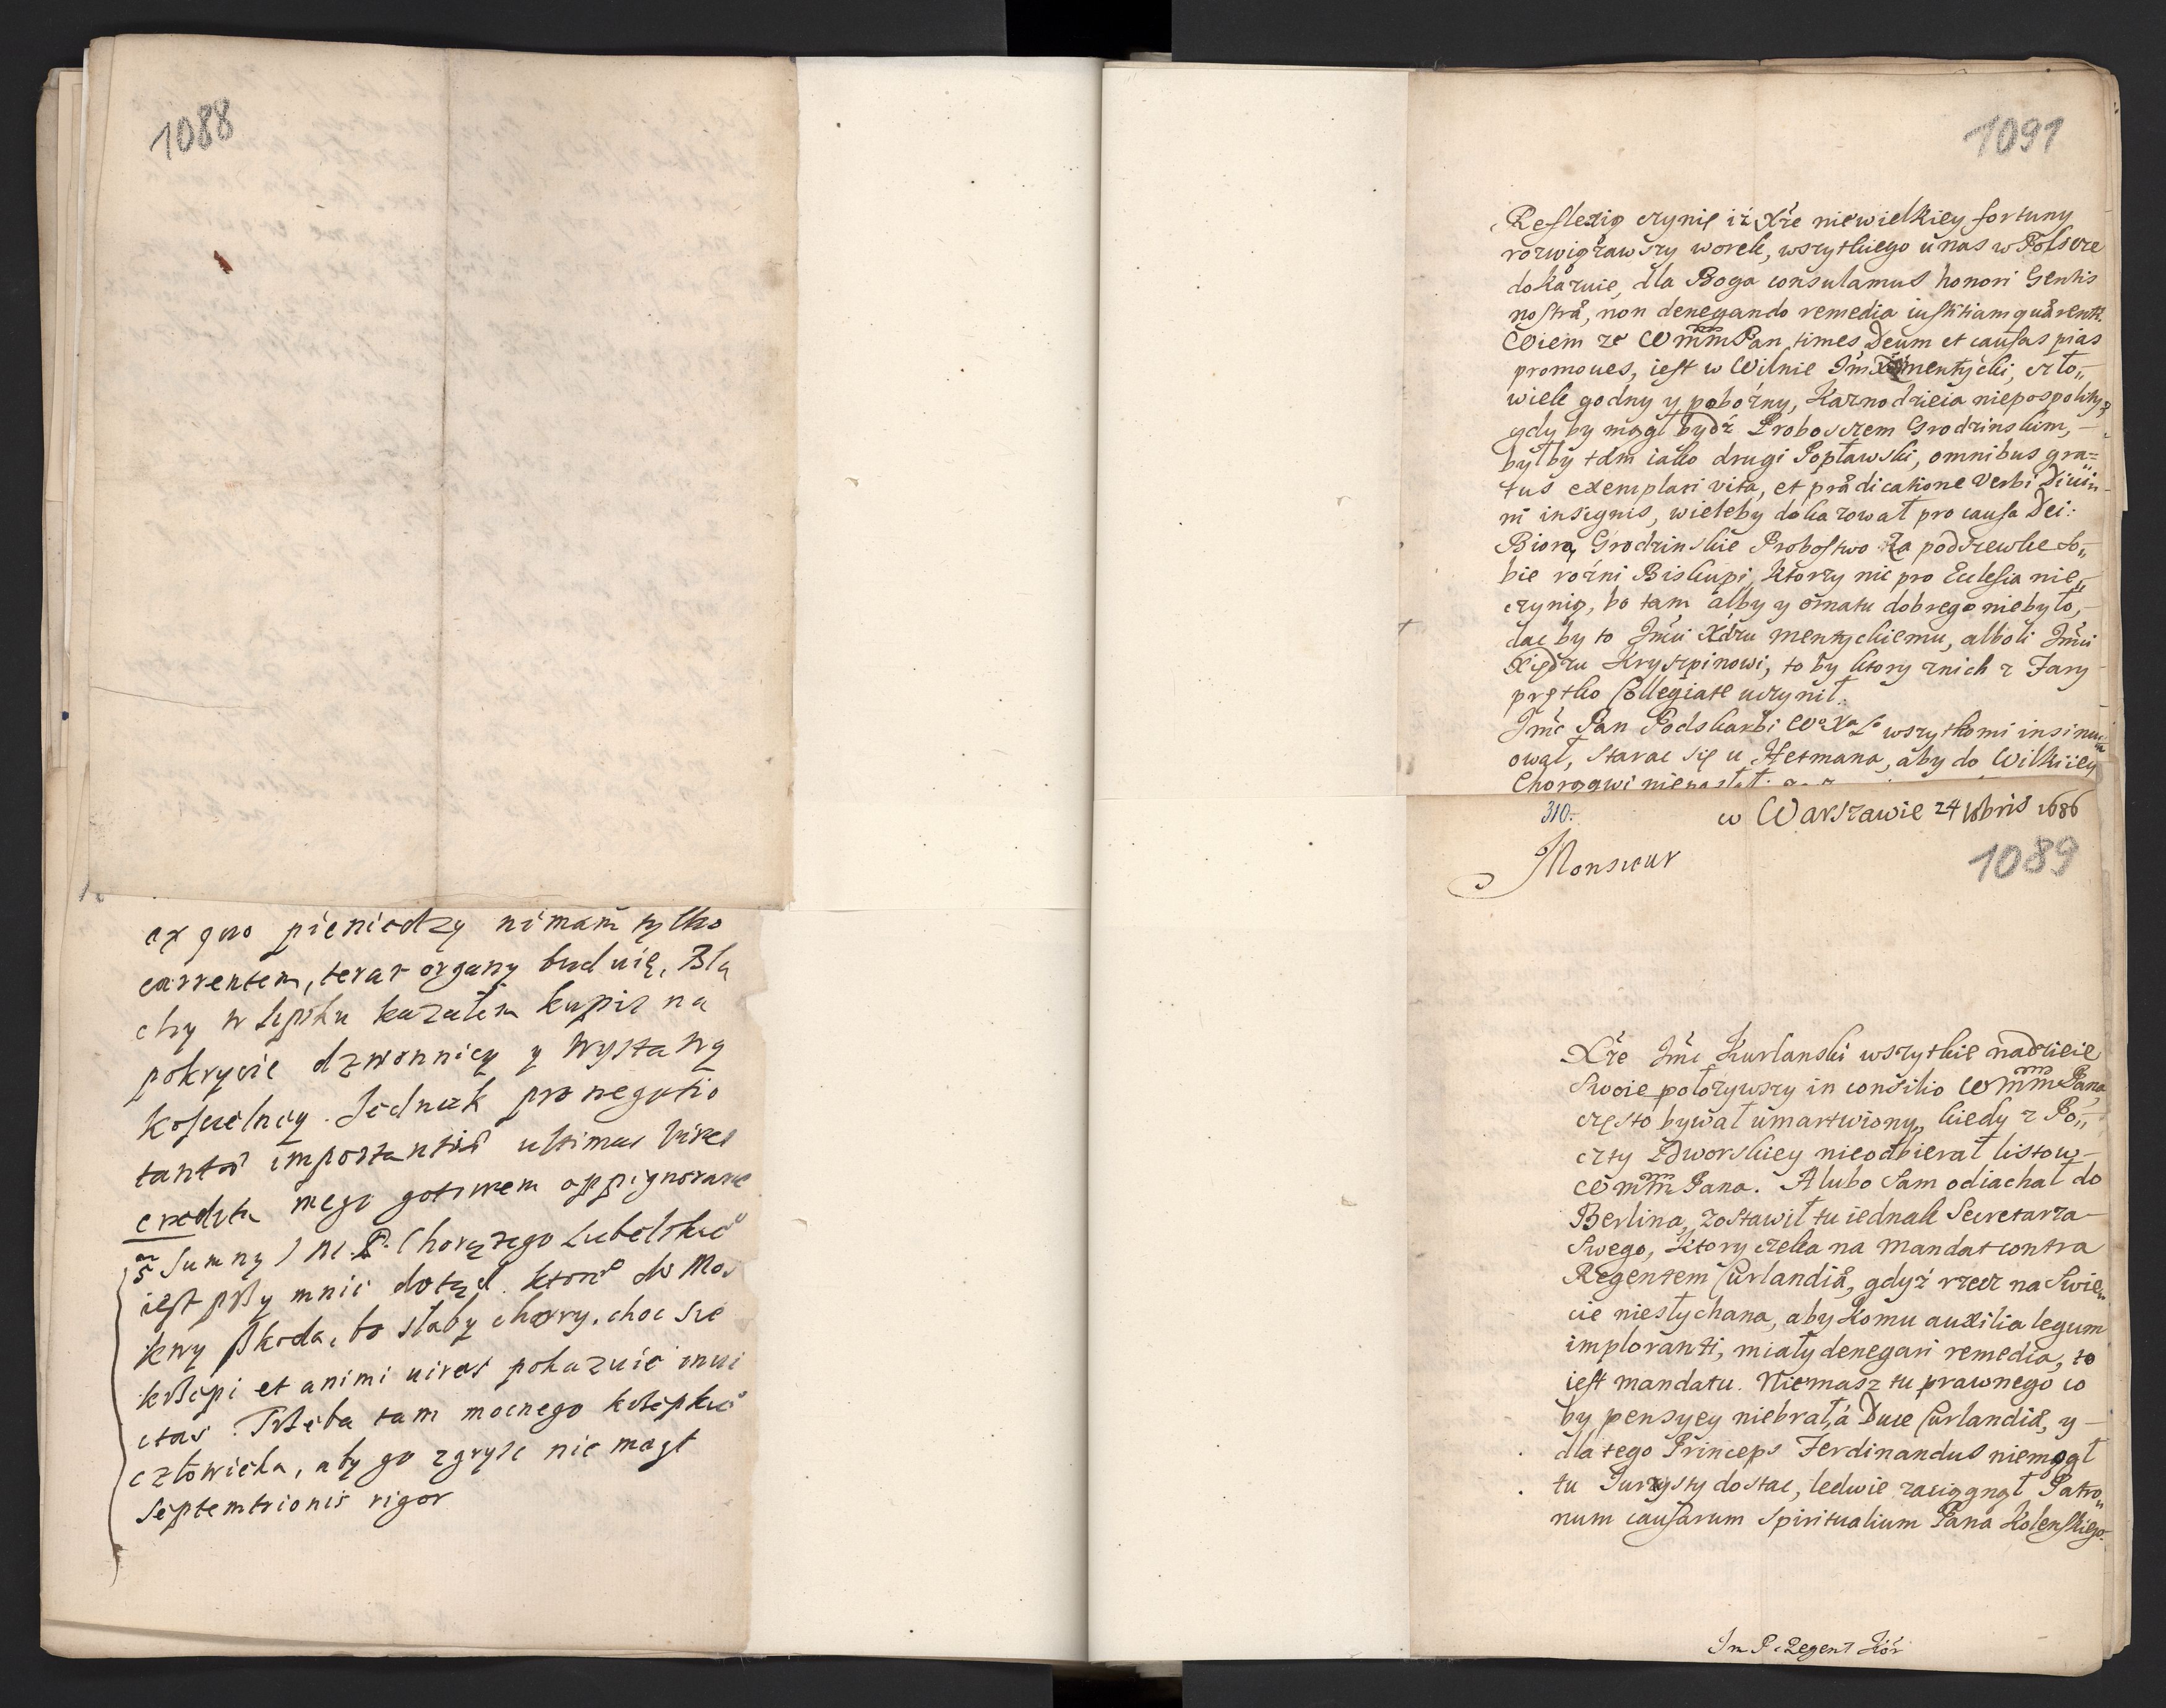 1088
ex quo pieniedzy nimam tylko
currentem, teraz organy buduię, Bla
chy w Lipsku kazałem kupic na
pokrycie dzwonnicy y Wystawy
koscielney. Jednak pro negotio
tanto importantis ultimas vires
creditu mego gotowem oppignorare
Summy J M. P. Chorązego Lubelskie͠o
iest pßy mnie dotąd. ktore do Mos
kwy ßkoda, bo słaby chorry, choc sie
kßepi et animi uires pokazuie inui
ctas. Tßeba tam mocnego kßepkie͠o
człowieka, aby go zgrysc nie mogł
septemtrionis rigor
1091
Reflexią czynię iż Xże niewielkiey fortuny
rozwiązawszy worek, wszytkiego u nas w Polszcze
dokazuie, dla Boga consulamus honori Gentis
nostræ, non denegando remedia iustitiam quærenti.
Wiem ze WMMPan times Deum et causas pias
promoues, iest w Wilnie Jm X Mentycki, czło„
wiek godny y pobożny, Kaznodzieia niepospolity,
gdy by mogł bydź Proboszczem Grodzinskim, –
byłby tam iako drugi Popławski, omnibus gra=
tus exemplari vita, et prædicatione Verbi Diuin
ni insignis, wieleby dokazował pro causa Dei:
Biorą Grodzinskie Probostwo za podszewke so„
bie rożni Biskupi, Ktorzy nic pro Eclesia nie„
czynią, bo tam alby y ornatu dobrego niebyło, –
dac by to Jmći Xdzu Mentyckiemu, alboli Jmći
Xiędzu Kryszpinowi, to by ktory z nich z Fary
prętko Collegiate uczynił.
Jmć Pan Podskarbi Wo Xa Lo wszytkomi insinu
ował, starac się u Hetmana, aby do Wilkiiey
Chorągwi nie
310.
w Warszawie 24 Xbris 1686
1089
Monsieur
Xże Jmć Kurlanski wszytkie nadzieie
Swoie położywszy in consilio WMMPana
często bywał umartwiony, kiedy z Po„
czty Zdworskiey nieodbierał listow –
WMMPana. A lubo sam odiachał do
Berlina, zostawił tu iednak Secretarza
Swego, Ktory czeka na Mandat contra
Regentem Curlandiæ, gdyż rzecz na Swie„
cie niesłychana, aby komu auxilia legum
imploranti, miały denegari remedia, to
iest mandatu. Niemasz tu prawnego co
by pensyey niebrał, á Duce Curlandiæ, y –
dla tego Princeps Ferdinandus niemogł
tu Jurzysty dostac, ledwie zaciągnął Patro„
num causarum Spiritualium Pana Kolenskiego.
Jm P Regent Kor